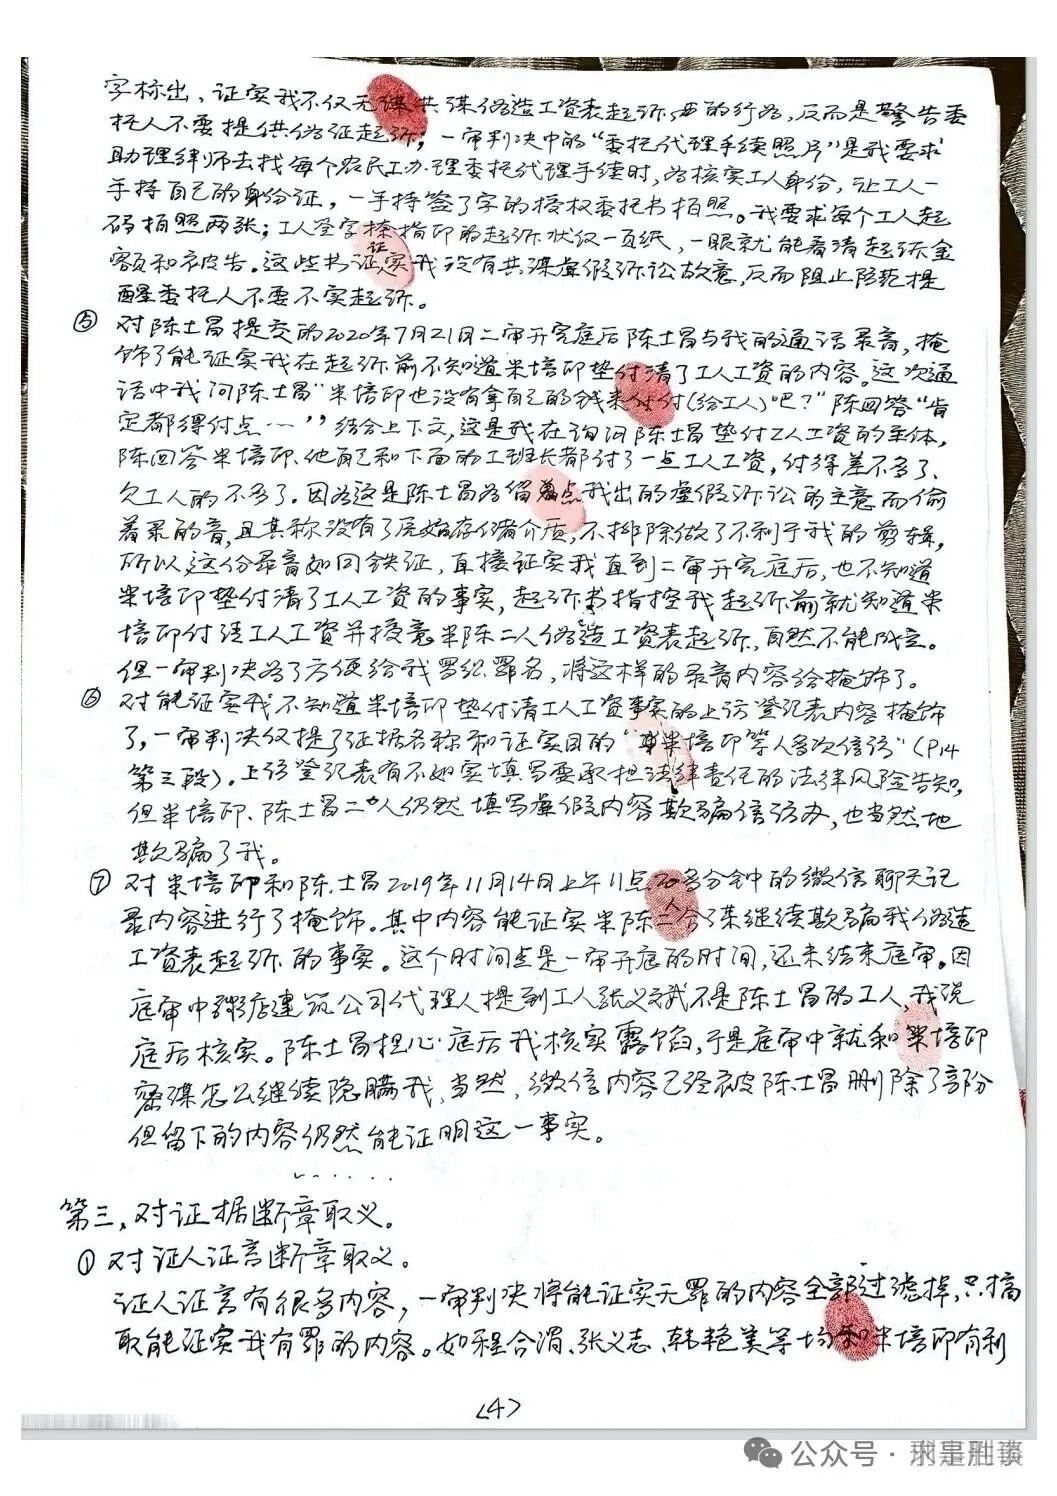 字标出，证实我不仅无谋共谋伪造工资表起诉的行为，反而是警告委
托人不要提供伪证起诉；一审判决中的“委托代理手续照片”是我要求
助理律师去找每个农民工办理委托代理手续时，为核实工人身份，让工人一
手持自己的身份证，一手持签了字的授权委托书拍照。我要求每个工人起
码拍照两张；工人签字捺指印的起诉状仅一页纸，一眼就能看清起诉金
额和被告。这些书证证实我没有共谋虚假诉讼故意，反而阻止防范提
醒委托人不要不实起诉。
⑤ 对陈士昌提交的2020年7月21日二审开完庭后陈士昌与我的通话录音，掩
饰了能证实我在起诉前不知道米培印垫付清了工人工资的内容。这次通
话中我问陈士昌“米培印也没有拿自己的钱来付(给工人)吧？”陈回答“肯
定都得付点…”，结合上下文，这是我在询问陈士昌垫付工人工资的主体，
陈回答米培印、他自己和下面的工班长都付了一点工人工资，付得差不多了、
欠工人的不多了。因为这是陈士昌为留着点我出的虚假诉讼的主意而偷
着录的音，且其称没有了原始存储介质，不排除做了不利于我的剪辑，
所以，这份录音如同铁证，直接证实我直到二审开完庭后，也不知道
米培印垫付清了工人工资的事实，起诉书指控我起诉前就知道米
培印付清工人工资并授意米陈二人伪造工资表起诉，自然不能成立。
但一审判决为了方便给我罗织罪名，将这样的录音内容给掩饰了。
⑥ 对能证实我不知道米培印垫付清工人工资事实的上访登记表内容掩饰
了，一审判决仅提了证据名称和证实目的“米培印等人多次信访”（P14
第三段）。上访登记表有不如实填写要承担法律责任的法律风险告知，
但米培印、陈士昌二人仍然填写虚假内容欺骗信访办，也当然地
欺骗了我。
⑦ 对米培印和陈士昌2019年11月14日上午11点20多分钟的微信聊天记
录内容进行了掩饰。其中内容能证实米陈二人合谋继续欺骗我伪造
工资表起诉的事实。这个时间点是一审开庭的时间，还未结束庭审。因
庭审中粥店建筑公司代理人提到工人张义武不是陈士昌的工人，我说
庭后核实。陈士昌担心庭后我核实露馅，于是庭审中就和米培印
密谋怎么继续隐瞒我，当然，微信内容已经被陈士昌删除了部分
但留下的内容仍然能证明这一事实。
......
第三，对证据断章取义。
① 对证人证言断章取义。
证人证言有很多内容，一审判决将能证实无罪的内容全部过滤掉，只摘
取能证实我有罪的内容。如程合渭、张义志、韩艳美等均和米培印有利
<4>
公众号·刑事胜谈